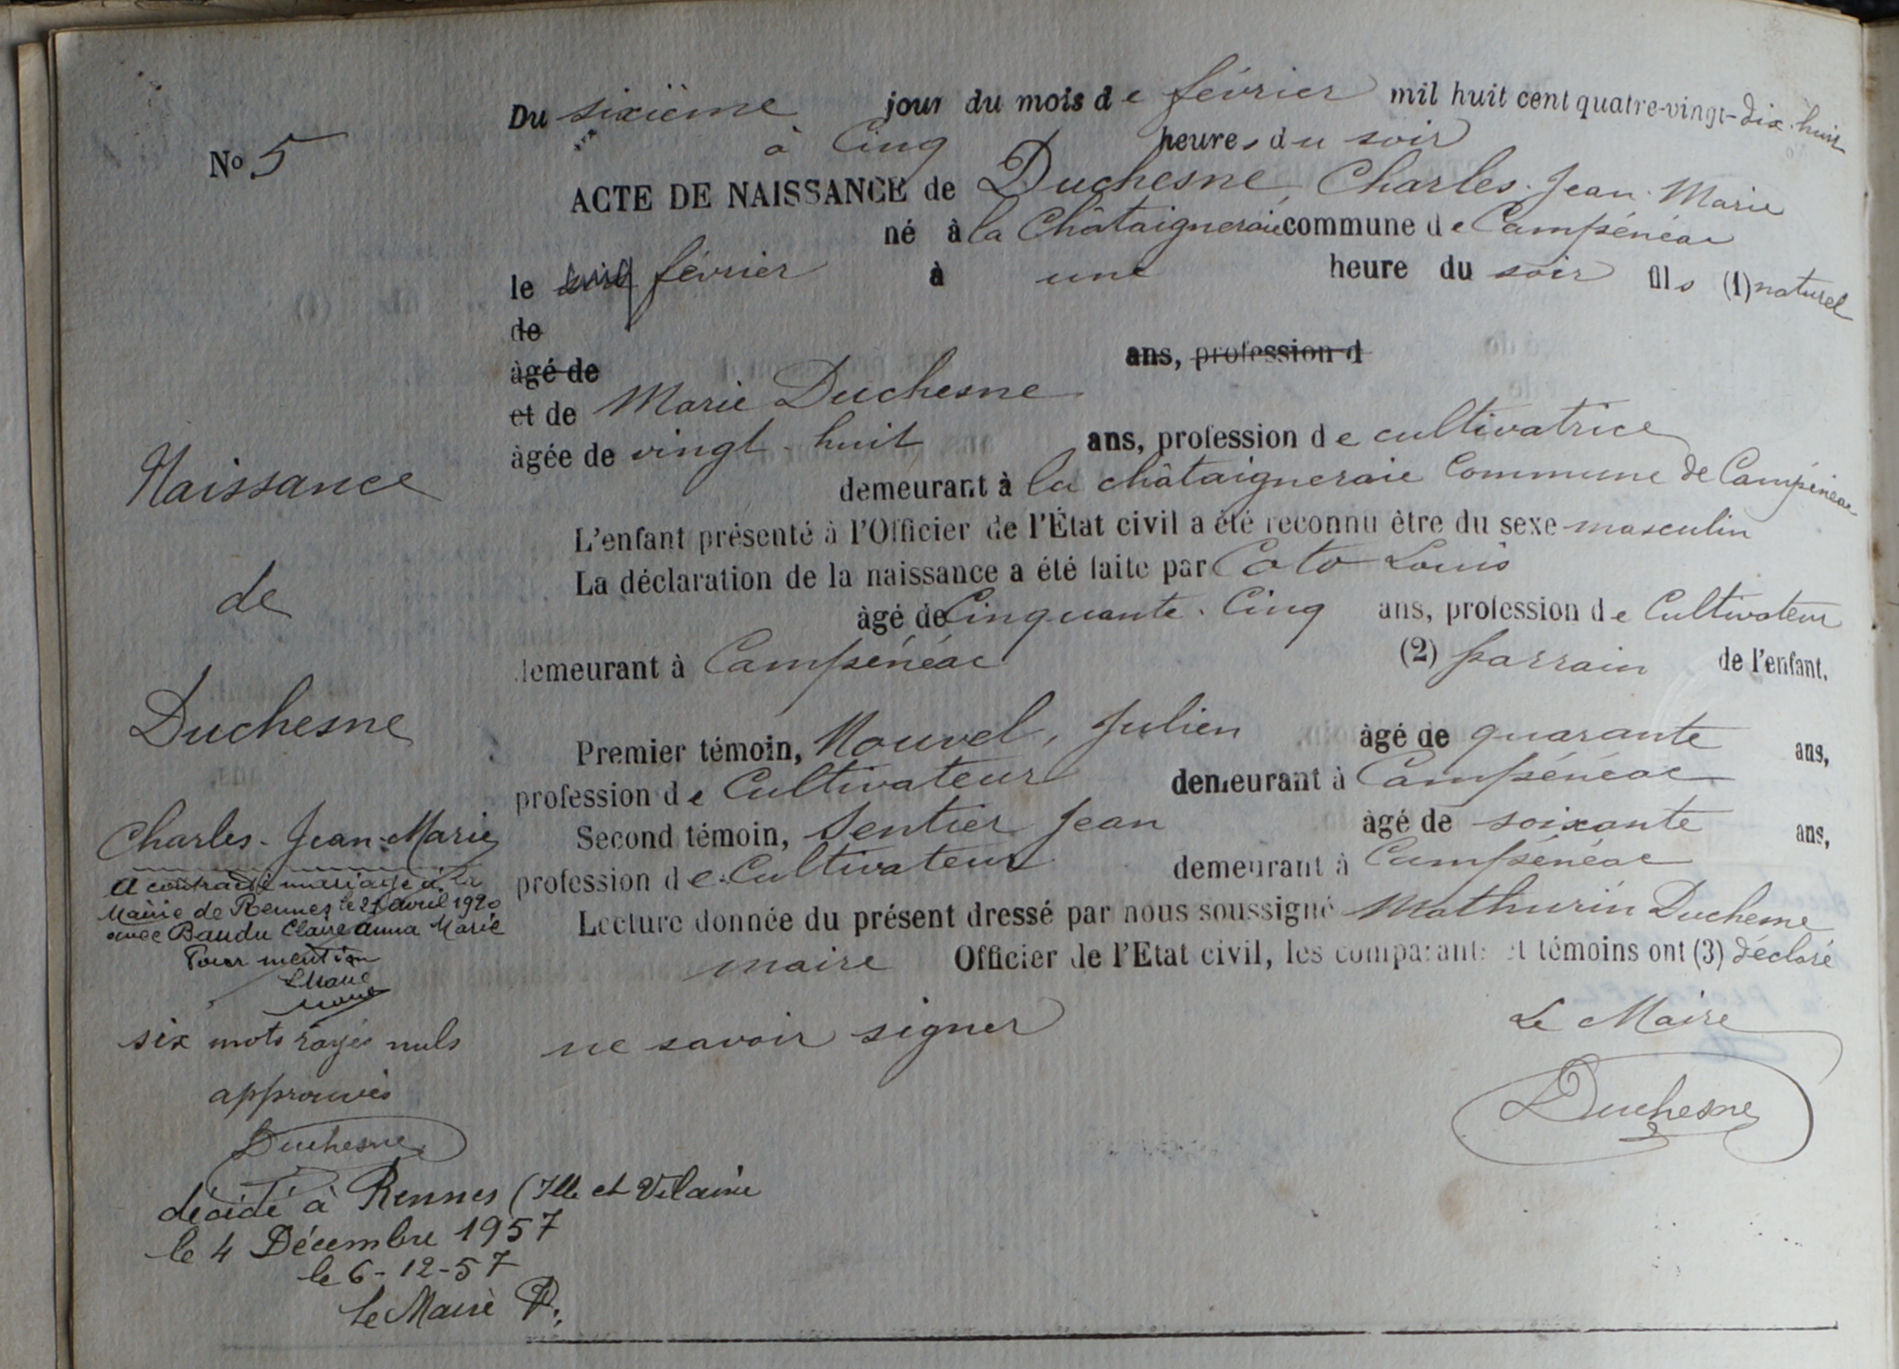 Du sixième jour du mois de février mil huit cent quatre-vingt-dix-huit
à Cinq heures du soir
No 5
ACTE DE NAISSANCE de Duchesne Charles-Jean-Marie
né à la Châtaigneraie commune de Campénéac
le février à une heure du soir fils (1) naturel
de
âgé de ans, profession d
et de Marie Duchesne
âgée de vingt-huit ans, profession de cultivatrice
demeurant à la châtaigneraie Commune de Campénéac
L'enfant présenté à l'Officier de l'État civil a été reconnu être du sexe masculin
La déclaration de la naissance a été faite par Coto Louis
âgé de Cinquante-Cinq ans, profession de Cultivateur
demeurant à Campénéac (2) parrain de l'enfant.
Premier témoin, Nouvel, Julien âgé de quarante ans,
profession de Cultivateur demeurant à Campénéac
Second témoin, Sentier Jean âgé de soixante ans,
profession de Cultivateur demeurant à Campénéac
Lecture donnée du présent dressé par nous soussigné Mathurin Duchesne
maire Officier de l'Etat civil, les comparant et témoins ont (3) déclaré
ne savoir signer
Le Maire
Duchesne
Naissance
de
Duchesne
Charles-Jean-Marie
A contracté mariage à la
Mairie de Rennes le avril 1920
avec Baudu Claire Anna Marie
Pour mention
Le Maire
six mots rayés nuls
approuvés
Duchesne
décédé à Rennes (Ille et Vilaine
le 4 Décembre 1957
le 6-12-57
le Maire